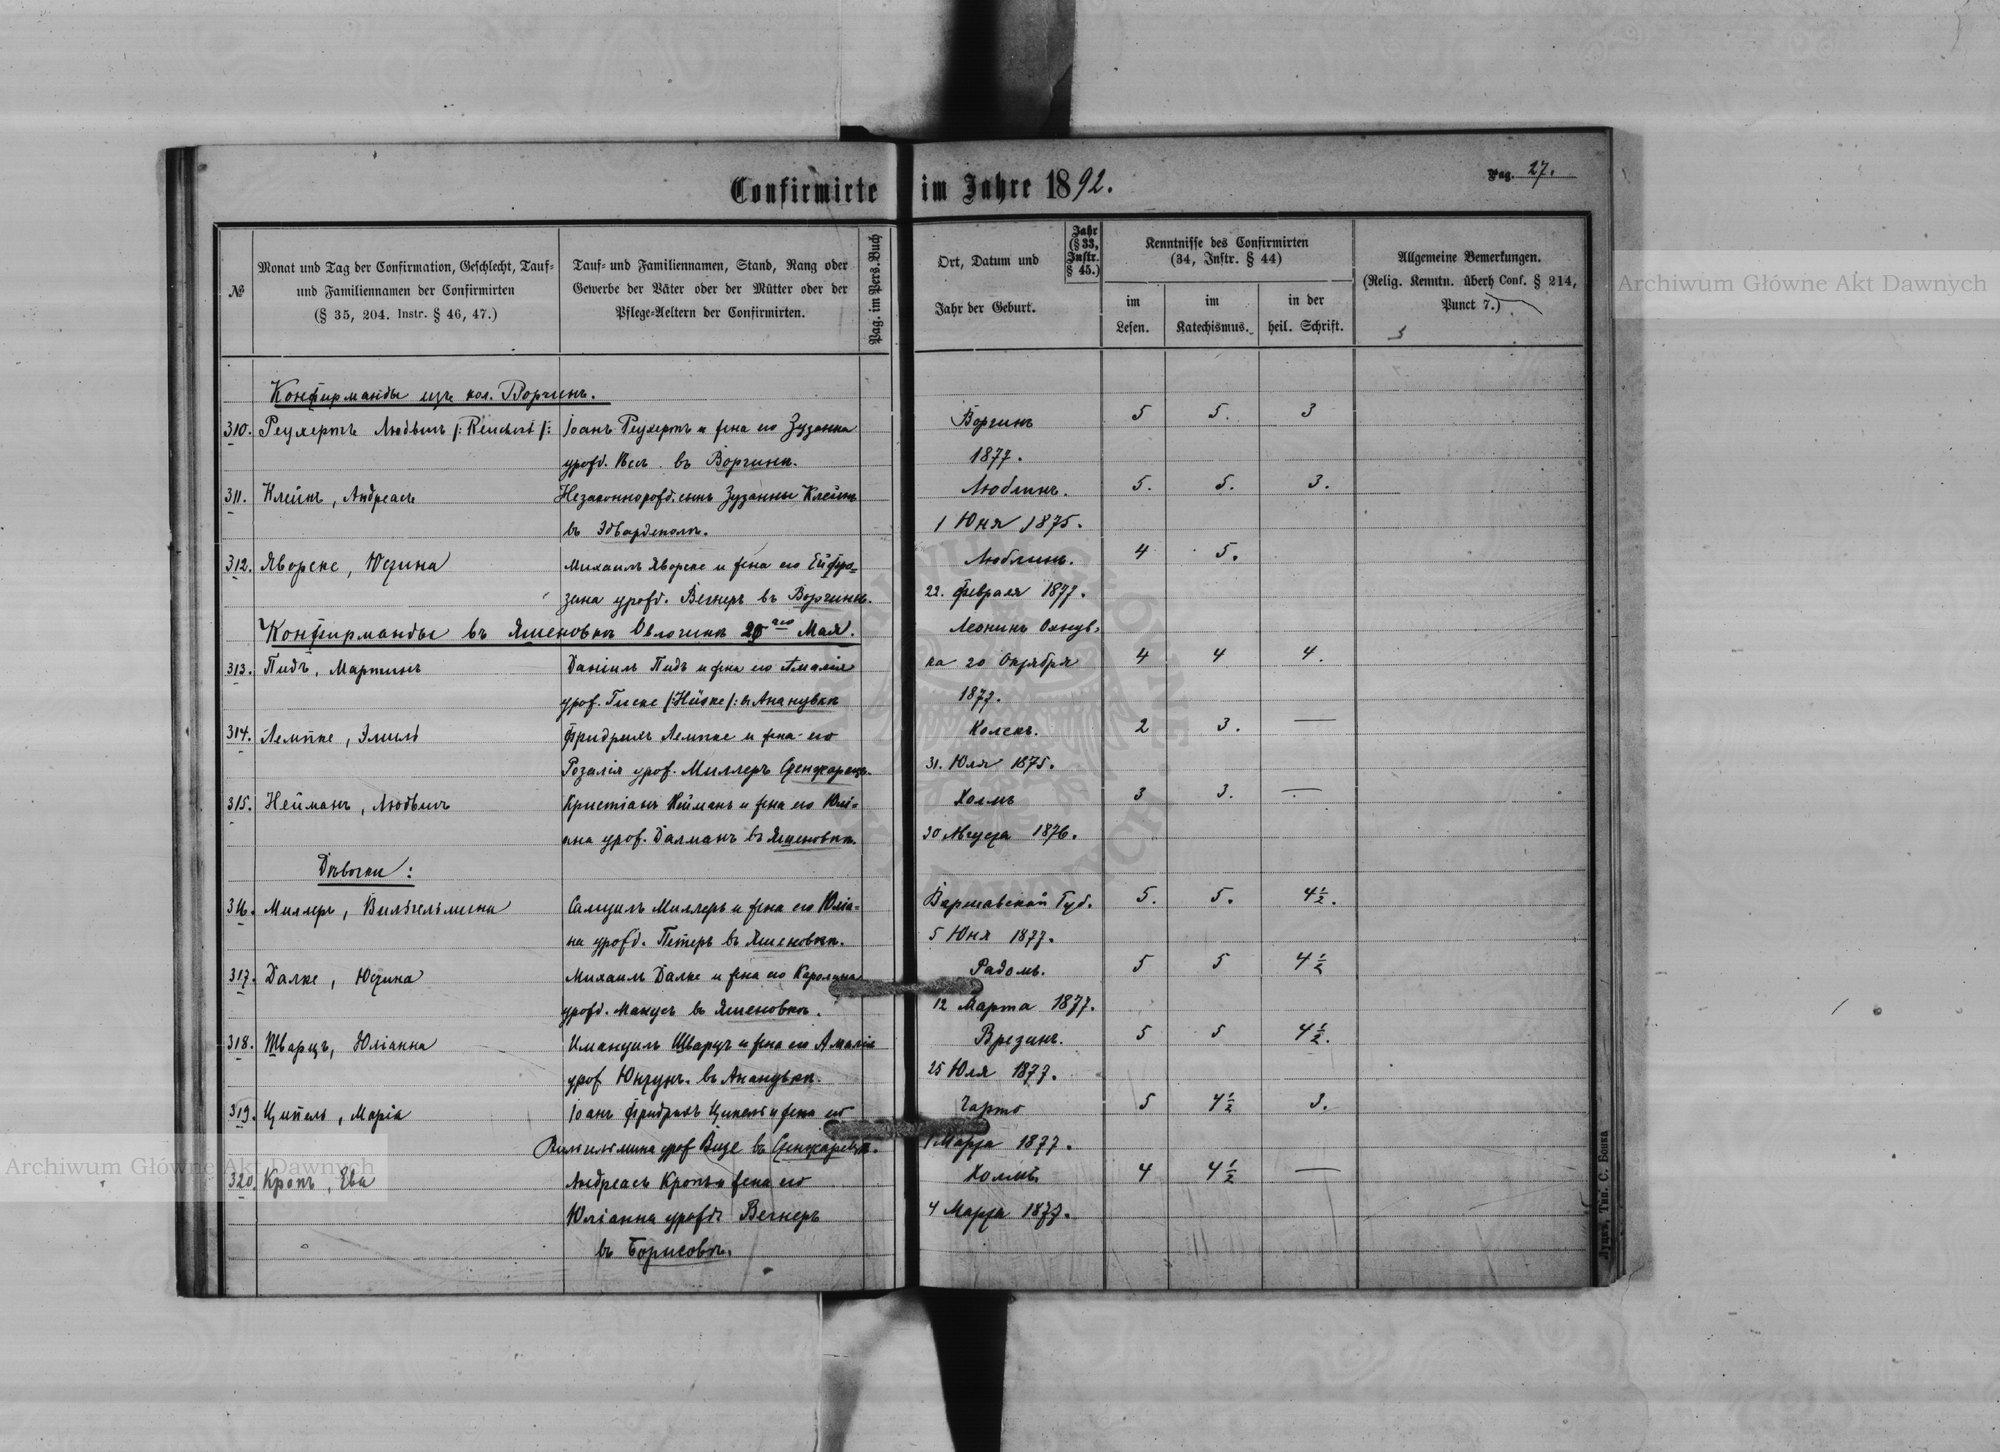 Confirmirte im Jahre 1892.
Pag. 27.
№
Monat und Tag der Confirmation, Geschlecht, Tauf-
und Familiennamen der Confirmirten
(§ 35, 204. Instr. § 46, 47.)
Tauf- und Familiennamen, Stand, Rang oder
Gewerbe der Väter oder der Mütter oder der
Pflege-Aeltern der Confirmirten.
Pag. im Pers.Buch
Ort, Datum und
Jahr der Geburt.
Jahr
(§ 33,
Instr.
§ 45.)
Kenntnisse des Confirmirten
(34, Instr. § 44)
im
Lesen.
im
Katechismus.
in der
heil. Schrift.
Allgemeine Bemerkungen.
(Relig. Kenntn. überh Conf. § 214,
Punct 7.)
Конфирманды изъ кол. Ворчинъ.
310. Реухертъ Людвигъ /: Reuchert /: Іоанъ Реухертъ и жена его Зузанна Ворчинъ 5 5. 3
урожд. въ Ворчинѣ. 1877.
311. Клейнъ, Андреасъ Незаконнорожд. сынъ Зузанны Клейнъ Люблинъ. 5. 5. 3.
въ Эдвардполѣ. 1 Юня 1875.
312. Яворске, Юзина Михаилъ Яворске и жена его Ейфро= Люблинъ. 4 5.
зина урожд. Вегнеръ въ Ворчинѣ. 22. Февраля 1877.
Конфирманды въ Яшеновкѣ Овлочинѣ 20го Мая. Леонинъ
313. Пидъ, Мартинъ Даніилъ Пидъ и жена его Амалія ка 20 Октября 4 4 4.
урож. Гиске /:Hüske/: въ Ананувкѣ 1877.
314. Лемпке, Эмиль Фридрихъ Лемпке и жена его Колекъ. 2 3. —
Розалія урож. Миллеръ 31. Юля 1875.
315. Нейманъ, Людвигъ Кристіанъ Нейманъ и жена его Юлі= Холмъ 3 3. —
ана урож. Далманъ въ Яшеновкѣ. 30 Августа 1876.
Дѣвочки:
316. Миллеръ, Вильгельмина Самуилъ Миллеръ и жена его Юліа= Варшавской Губ. 5. 5. 4½.
на урожд. Петеръ въ Яшеновкѣ. 5 Юня 1877.
317. Далке, Юзина Михаилъ Далке и жена его Каролина Радомъ. 5 5 4½
урожд. Манусъ въ Яшеновкѣ. 12 Марта 1877.
318. Шварцъ, Юліанна Имануилъ Шварцъ и жена его Амалія Врезинъ. 5 5 4½.
урож въ Ананувкѣ. 25 Юля 1877.
319. Ципель, Марія Іоанъ Фридрихъ Ципель и жена его Чарто 5 4½ 3.
Вильгельмина урож Визе въ 1 Марта 1877.
320. Кропъ, Ева Андреасъ Кропъ и жена его Холмъ. 4 4½ —
Юліанна урожд Вегнеръ 4 Марта 1877.
въ Борисовкѣ.
Луцкъ, Тип. С. Бонка
Archiwum Główne Akt Dawnych
Archiwum Główne Akt Dawnych